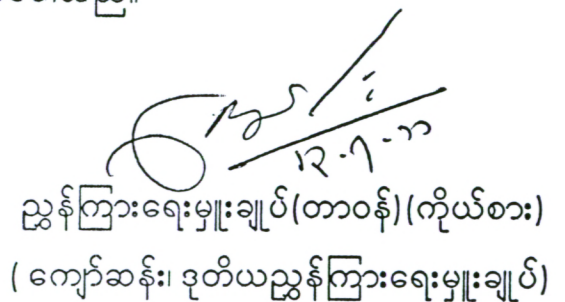 ၁၃-၇-၁၁
ညွှန်ကြားရေးမှူးချုပ်(တာဝန်)(ကိုယ်စား)
( ကျော်ဆန်း၊ ဒုတိယညွှန်ကြားရေးမှူးချုပ်)